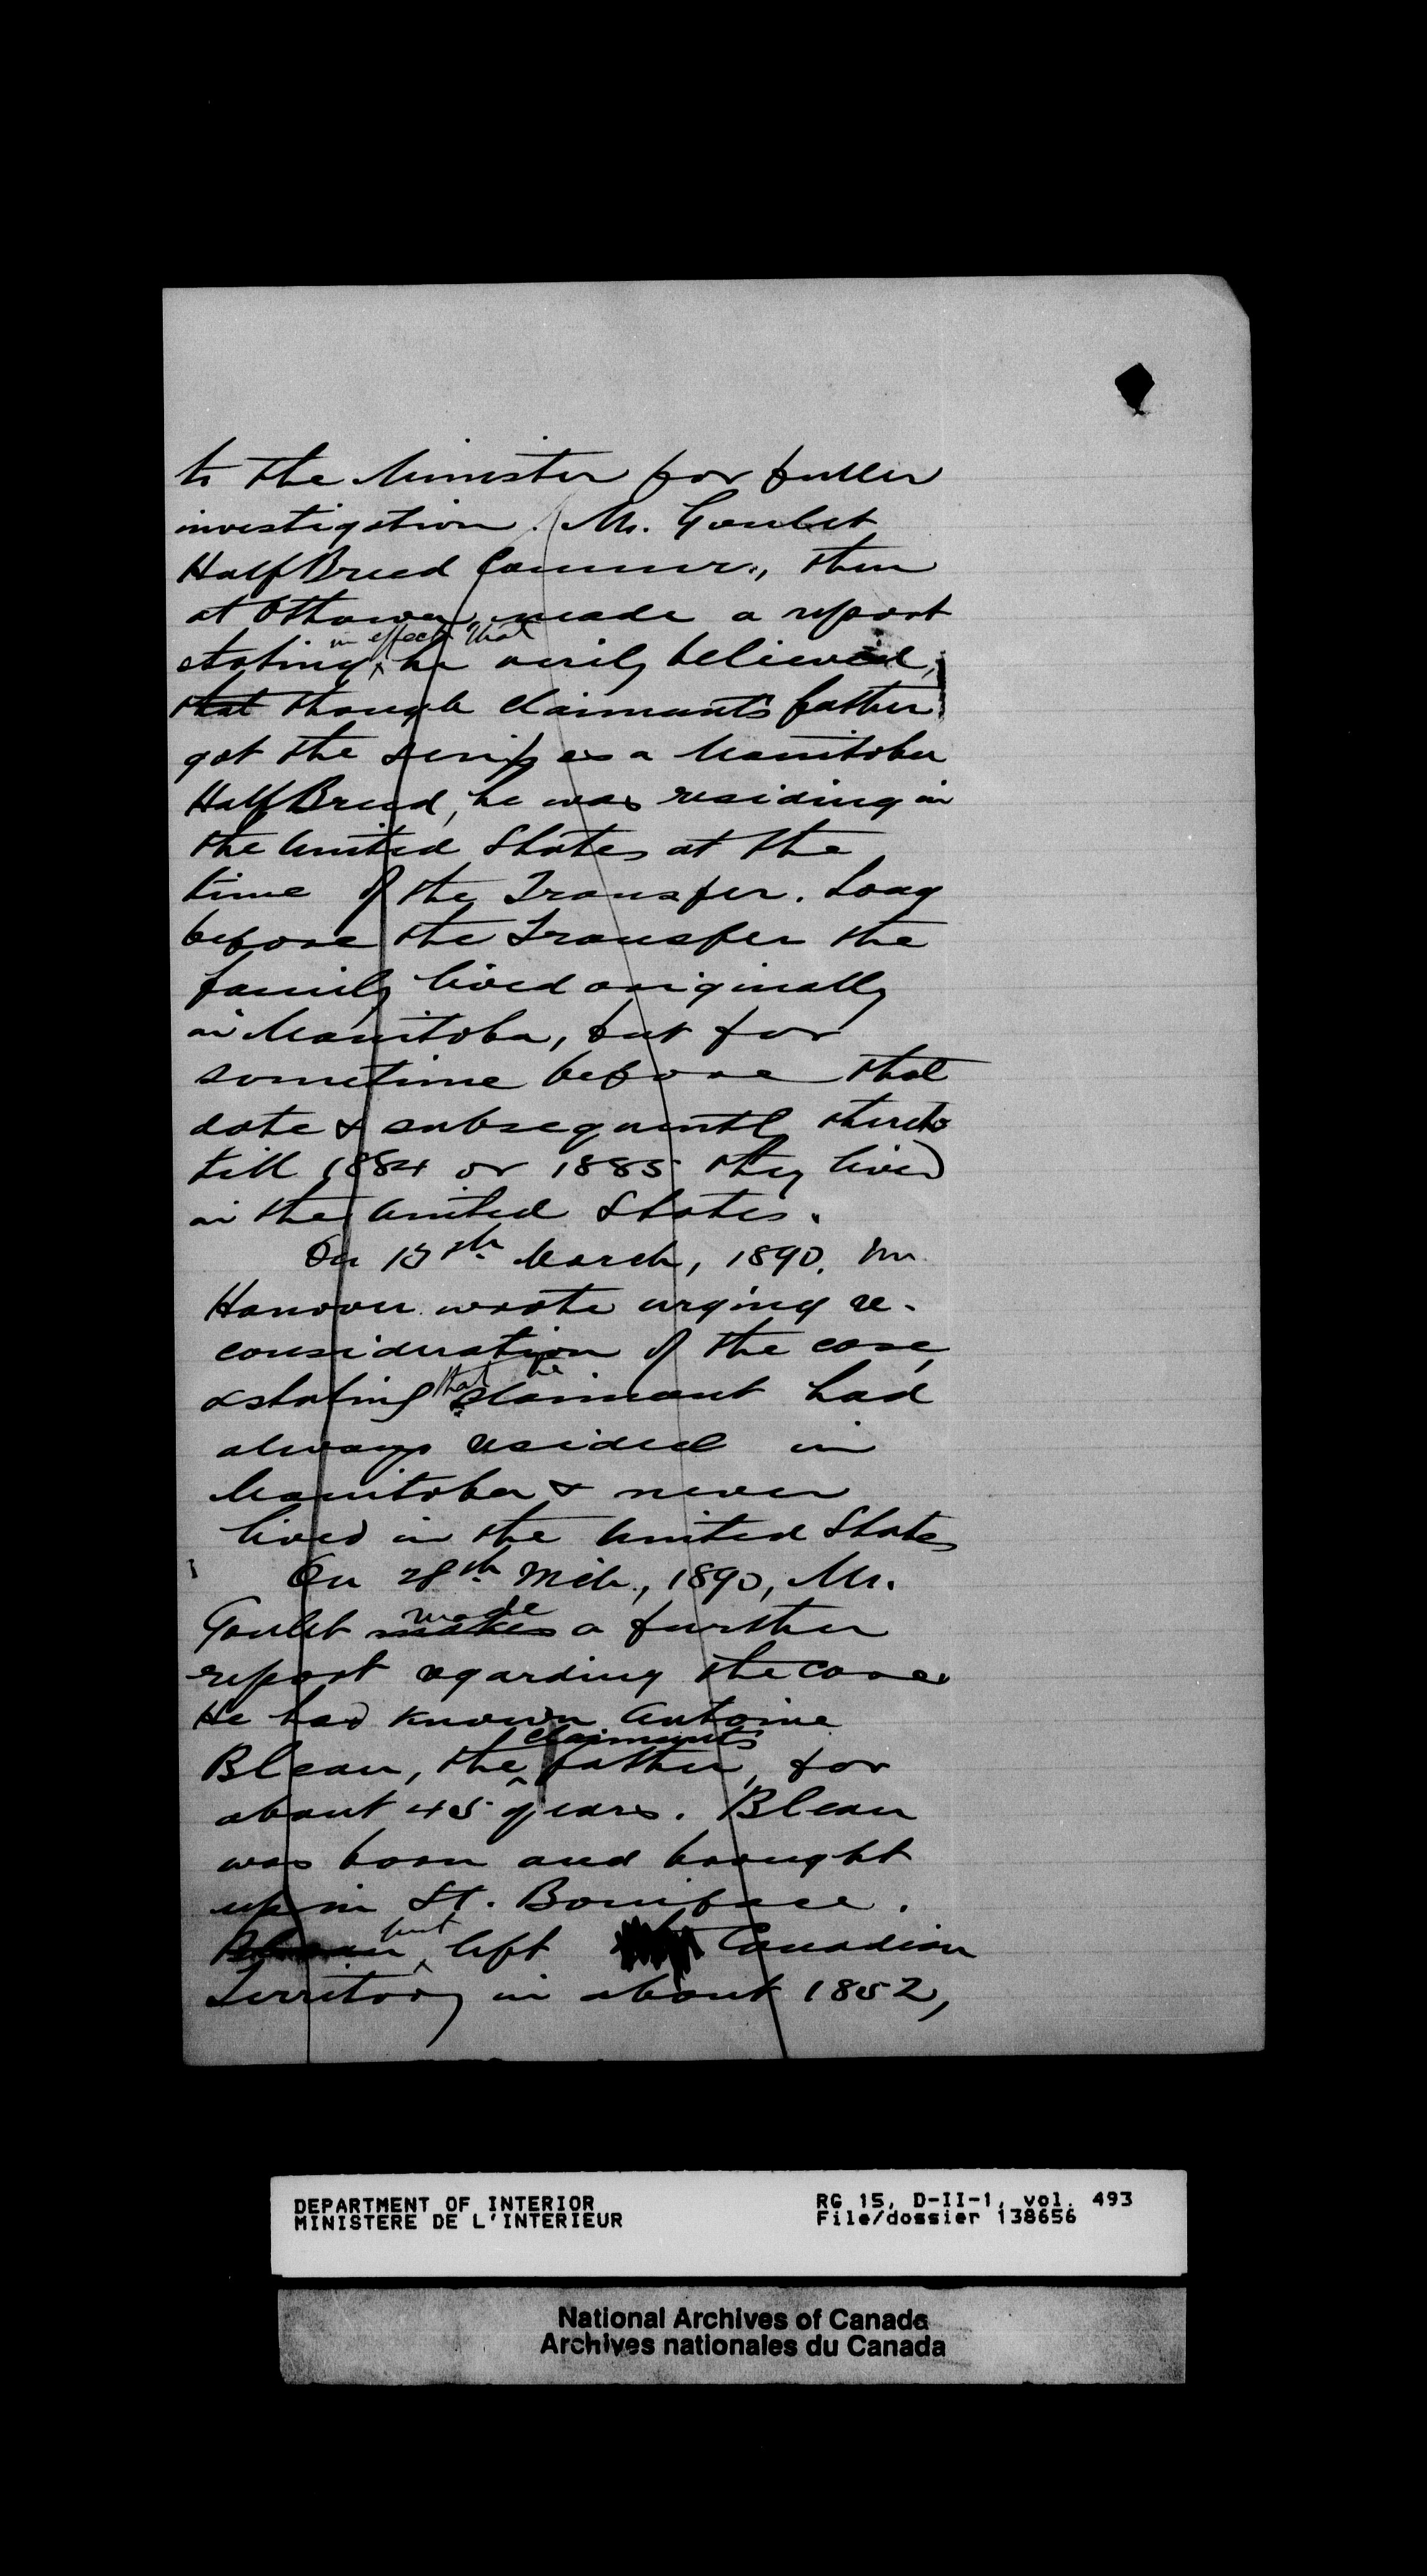 to the Minister for fuller
investigation. Mr. Goulet
Half Breed Commr., then
at Ottawa, made a report
stating in effect that he verily believed,
that though claimant's father
got the scrip as a Manitoba
Half Breed, he was residing in
the United States at the
time of the Transfer. Long
before the Transfer the
family lived originally
in Manitoba, but for
sometime before that
date & subsequently thereto
till 1884 or 1885 they lived
in the United States.
On 15th March, 1890, Mr
Hanover wrote urging re-
consideration of the case,
& stating that the claimant had
always resided in
Manitoba & never
lived in the United States
On 28th Mch., 1890, Mr.
Goulet makes made a further
report regarding the case.
He had known Antoine
Bleau, the claimant's father, for
about 45 years. Bleau
was born and brought
up in St. Boniface.
Bleau but left Canadian
Territory in about 1852,
DEPARTMENT OF INTERIOR
MINISTERE DE L'INTERIEUR
RG 15, D-II-1, vol. 493
File/dossier 138656
National Archives of Canada
Archives nationales du Canada